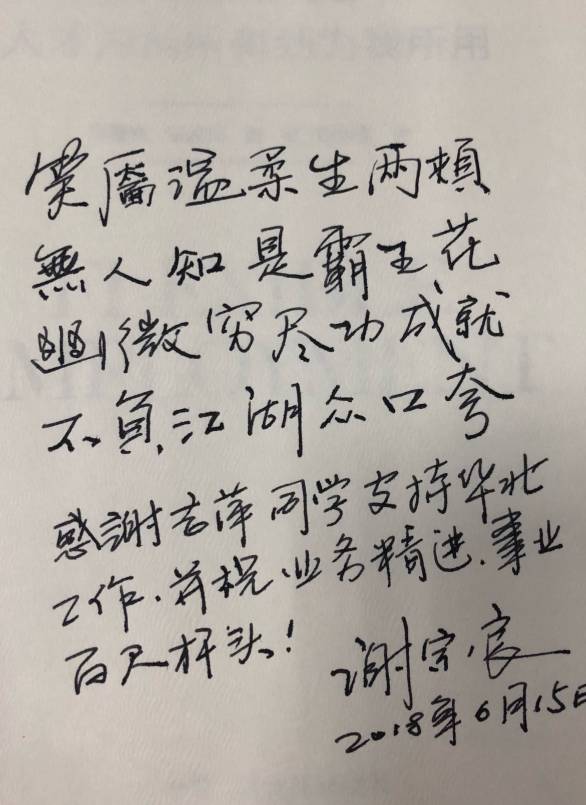 笑靨温柔生两頰
無人知是霸王花
幽微穷尽功成就
不負江湖众口夸
感謝志萍同学支持华北
工作.并祝业务精进.事业
百尺杆头!
谢宗良
2018年6月15日